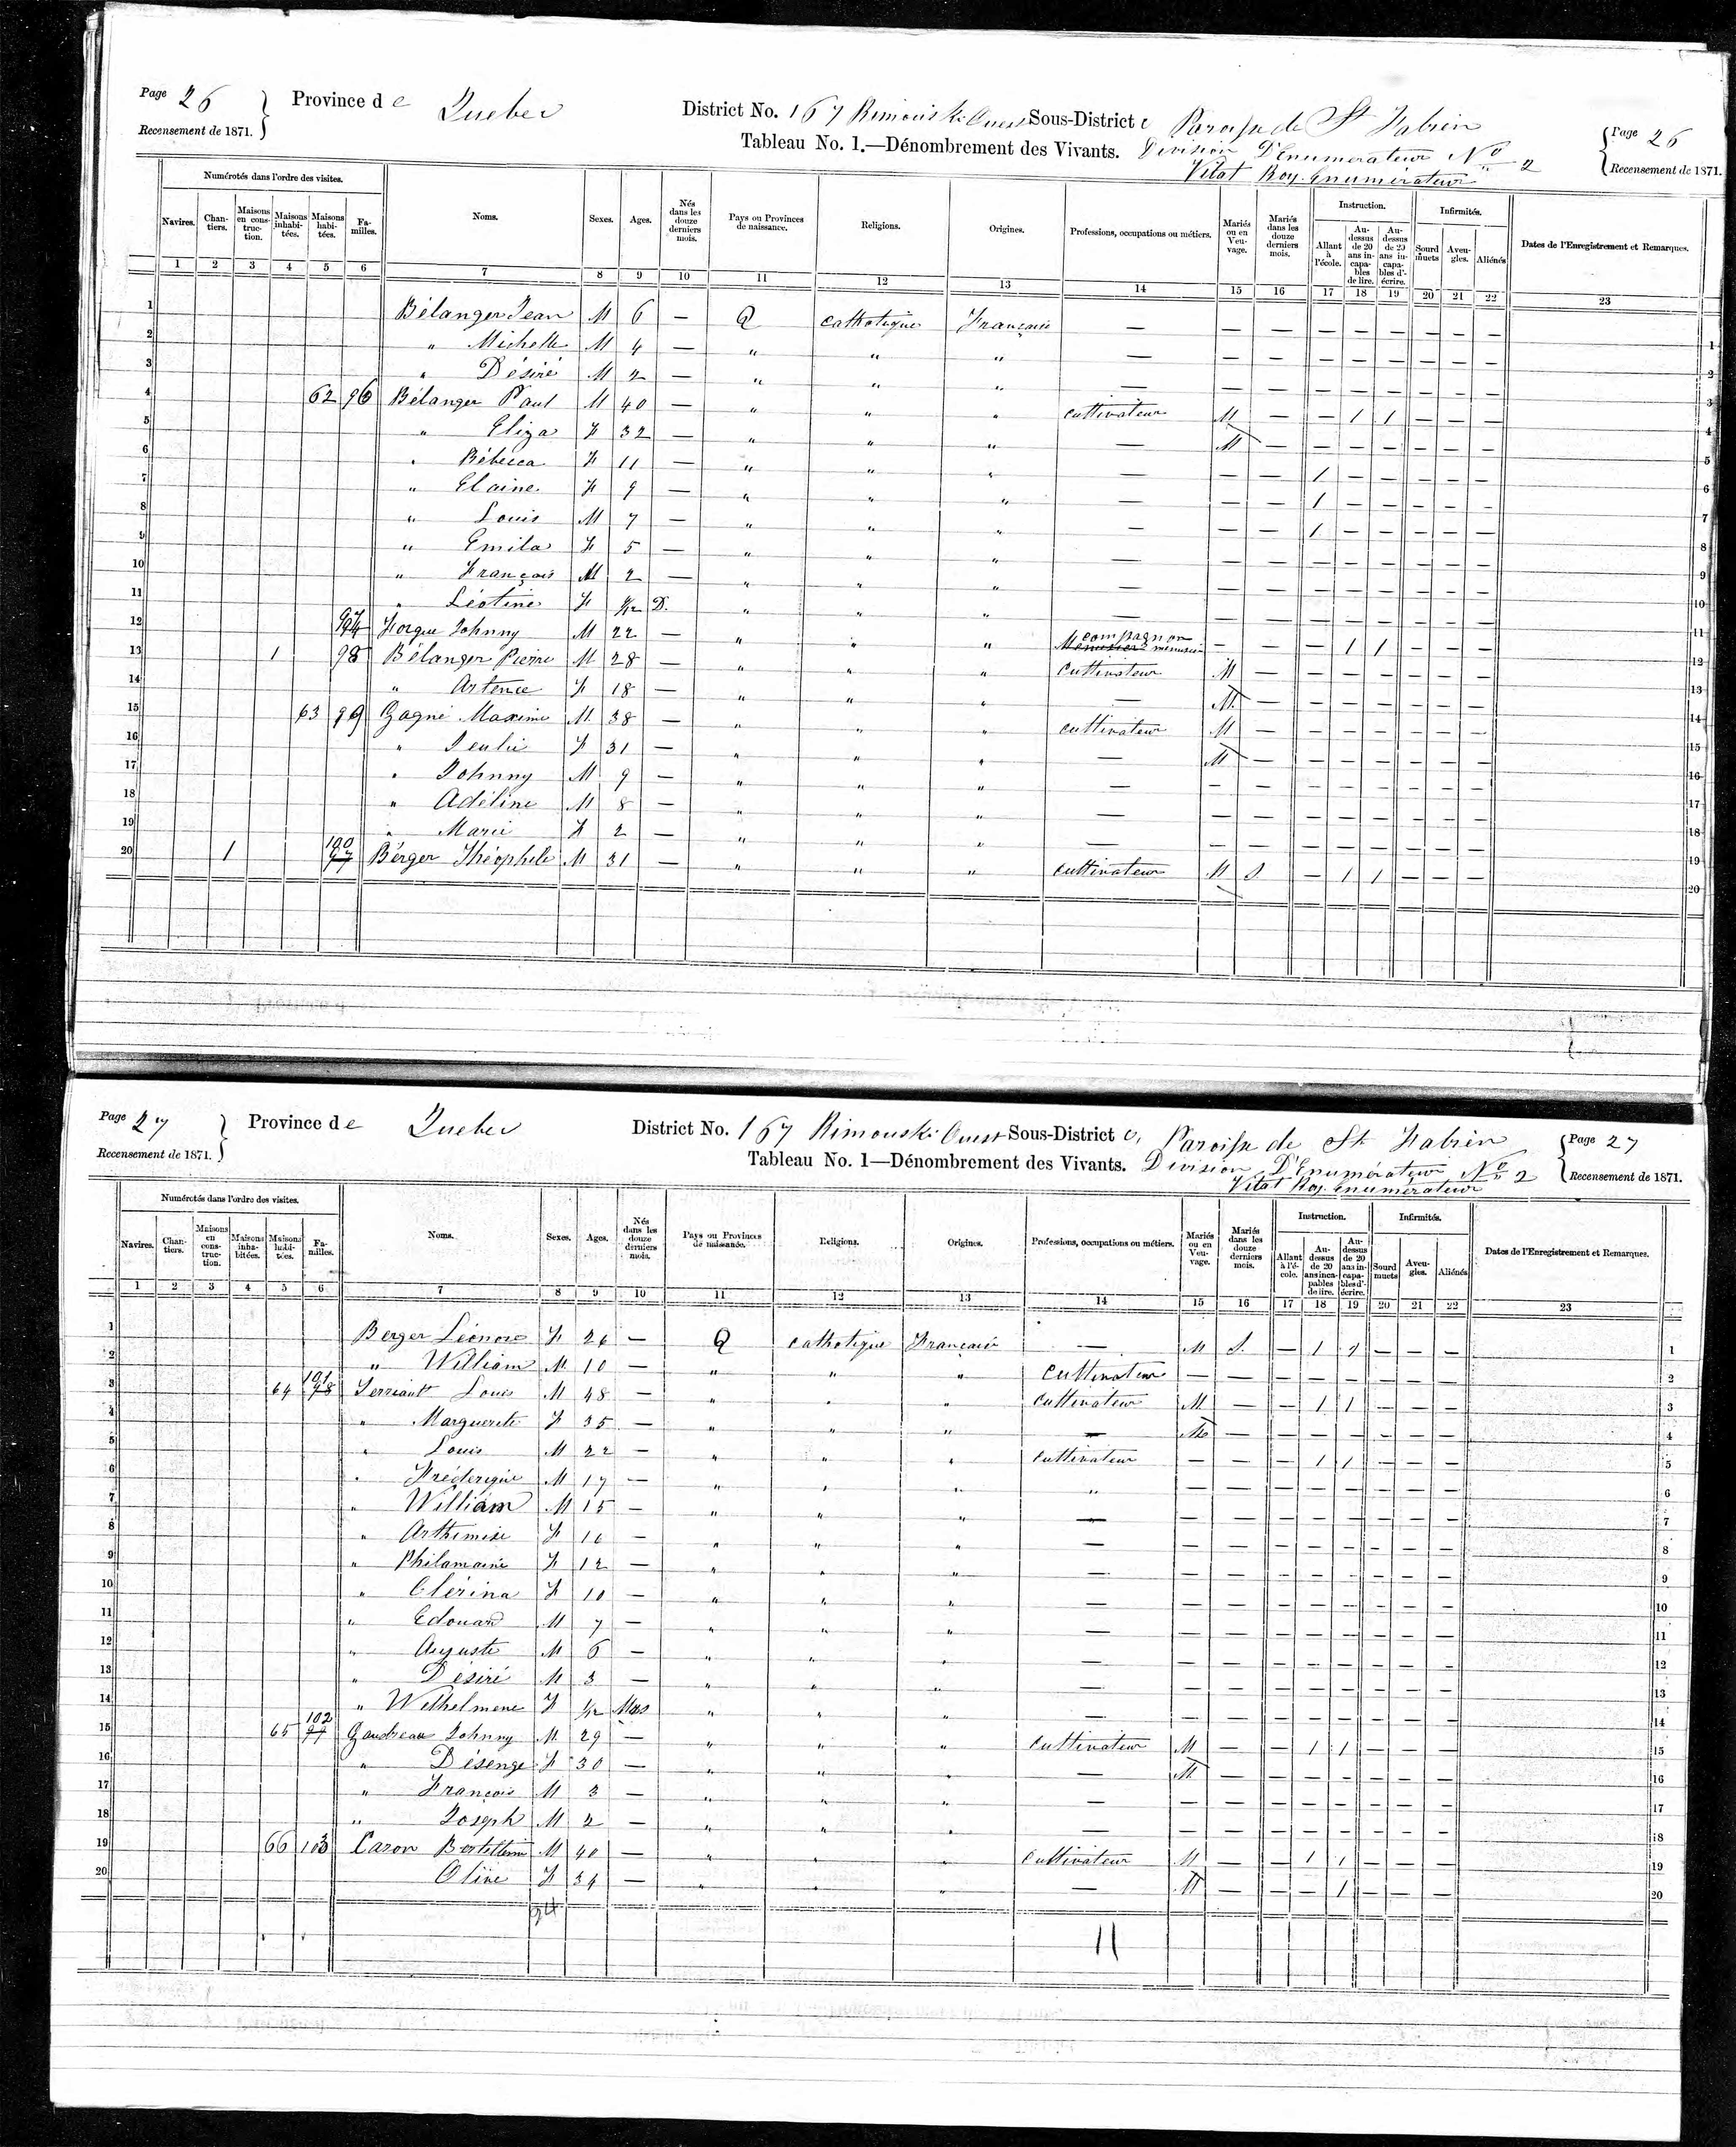 Page 26 } Province de Quebec District No. 167 Rimouski Ouest Sous-District c Paroisse de St Fabien { Page 26
Recensement de 1871. Tableau No. 1.—Dénombrement des Vivants. Division D'Enumerateur No 2 Recensement de 1871.
Vital Roy Enumérateur
Numérotés dans l'ordre des visites.
Navires. Chantiers. Maisons en construction. Maisons inhabitées. Maisons habitées. Familles. Noms. Sexes. Ages. Nés dans les douze derniers mois. Pays ou Provinces de naissance. Religions. Origines. Professions, occupations ou métiers. Mariés ou en Veuvage. Mariés dans les douze derniers mois. Instruction. Allant à l'école. Au-dessus de 20 ans incapables de lire. Au-dessus de 20 ans incapables d'écrire. Infirmités. Sourd muets Aveugles. Aliénés Dates de l'Enregistrement et Remarques.
1 2 3 4 5 6 7 8 9 10 11 12 13 14 15 16 17 18 19 20 21 22 23
1 Bélanger Jean M 6 — Q Catholique Française — — — — — — — — — 1
2 " Michelle M 4 — " " " — — — — — — — — — 2
3 " Désiré M 2 — " " " — — — — — — — — — 3
4 62 96 Bélanger Paul M 40 — " " " Cultivateur M — — 1 1 — — — 4
5 " Eliza F 32 — " " " — M — — — — — — — 5
6 " Rébecca F 11 — " " " — — — 1 — — — — — 6
7 " Elaine F 9 — " " " — — — 1 — — — — — 7
8 " Louis M 7 — " " " — — — 1 — — — — — 8
9 " Emila F 5 — " " " — — — — — — — — — 9
10 " François M 2 — " " " — — — — — — — — — 10
11 " Léotine F /12 D. " " " — — — — — — — — — 11
12 97 Forgue Johnny M 22 — " " " compagnon menusier — — — 1 1 — — — 12
13 1 98 Bélanger Pierre M 28 — " " " Cultivateur M — — — — — — — 13
14 " Artence F 18 — " " " — M — — — — — — — 14
15 63 99 Gagné Maxime M 38 — " " " Cultivateur M — — — — — — — 15
16 " Julie F 31 — " " " — M — — — — — — — 16
17 " Johnny M 9 — " " " — — — — — — — — — 17
18 " Adéline M 8 — " " " — — — — — — — — — 18
19 " Marie F 2 — " " " — — — — — — — — — 19
20 1 100 97 Bérger Théophile M 31 — " " " Cultivateur M S — 1 1 — — — 20
Page 27 } Province de Quebec District No. 167 Rimouski Ouest Sous-District c, Paroisse de St Fabien { Page 27
Recensement de 1871. Tableau No. 1—Dénombrement des Vivants. Division D'Enumérateur No 2 Recensement de 1871.
Vital Roy Enumérateur
Numérotés dans l'ordre des visites.
Navires. Chantiers. Maisons en construction. Maisons inhabitées. Maisons habitées. Familles. Noms. Sexes. Ages. Nés dans les douze derniers mois. Pays ou Provinces de naissance. Religions. Origines. Professions, occupations ou métiers. Mariés ou en Veuvage. Mariés dans les douze derniers mois. Instruction. Allant à l'école. Au-dessus de 20 ans incapables de lire. Au-dessus de 20 ans incapables d'écrire. Infirmités. Sourd muets Aveugles. Aliénés Dates de l'Enregistrement et Remarques.
1 2 3 4 5 6 7 8 9 10 11 12 13 14 15 16 17 18 19 20 21 22 23
1 Berger Léonore F 26 — Q Catholique Française — M S. — 1 1 — — — 1
2 " William M 10 — " " " Cultivateur — — — — — — — — 2
3 64 101 98 Terriault Louis M 48 — " " " Cultivateur M — — 1 1 — — — 3
4 " Marguerite F 35 — " " " — M — — — — — — — 4
5 " Louis M 22 — " " " Cultivateur — — — 1 1 — — — 5
6 " Fréderique M 17 — " " " " — — — — — — — — 6
7 " William M 15 — " " " — — — — — — — — — 7
8 " Arthimise F 16 — " " " — — — — — — — — — 8
9 " Philamaine F 12 — " " " — — — — — — — — — 9
10 " Clérina F 10 — " " " — — — — — — — — — 10
11 " Edouard M 7 — " " " — — — — — — — — — 11
12 " Auguste M 6 — " " " — — — — — — — — — 12
13 " Désiré M 3 — " " " — — — — — — — — — 13
14 " Wilhelmene F 1/12 Mars " " " — — — — — — — — — 14
15 65 102 Gaudreau Johnny M 29 — " " " Cultivateur M — — 1 1 — — — 15
16 " Désenge F 30 — " " " — M — — — — — — — 16
17 " François M 3 — " " " — — — — — — — — — 17
18 " Joseph M 2 — " " " — — — — — — — — — 18
19 66 103 Caron M 40 — " " " Cultivateur M — — 1 1 — — — 19
20 Oline F 34 — " " " — M — — — 1 — — — 20
11